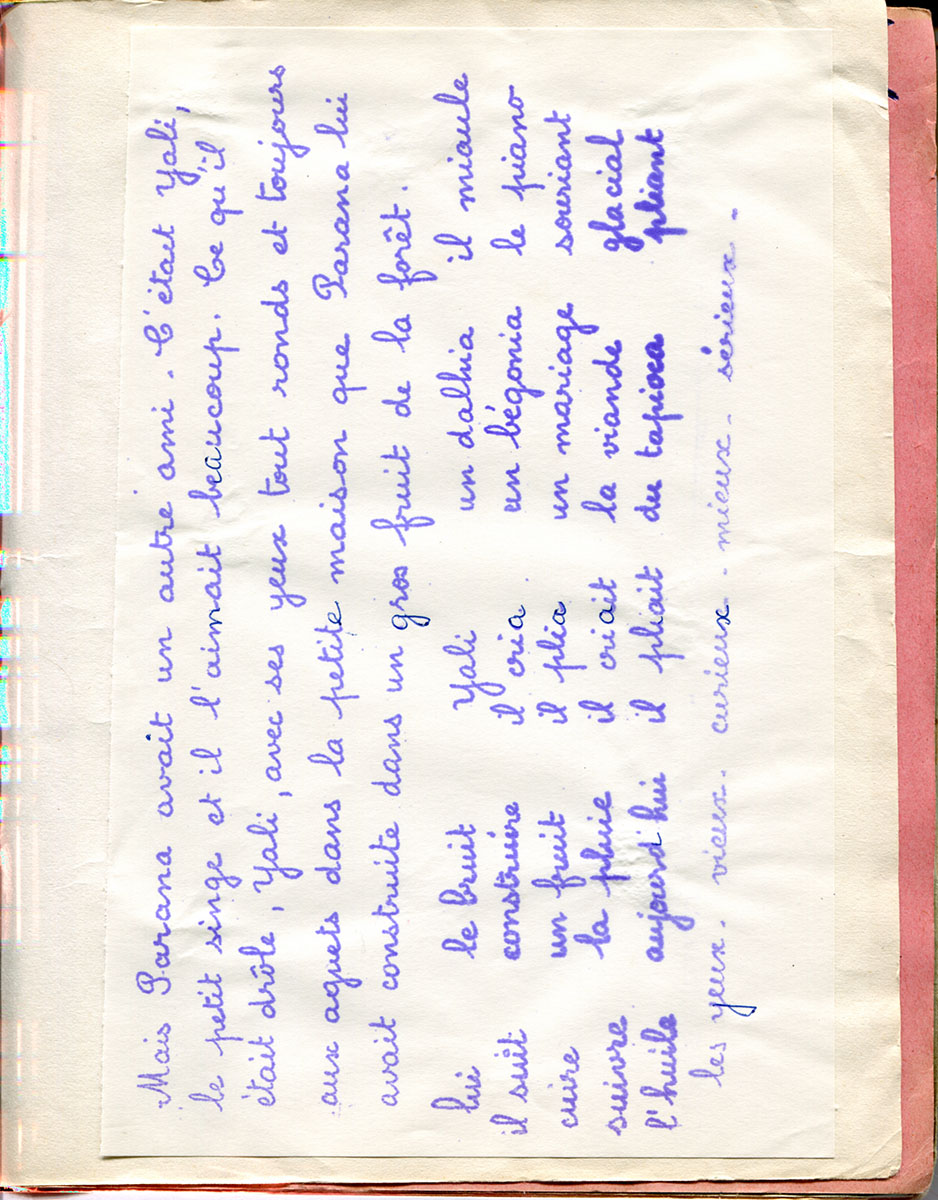 Mais Parana avait un autre ami. C'était Yali,
le petit singe et il l'aimait beaucoup. Ce qu'il
était drôle, Yali, avec ses yeux tout ronds et toujours
aux aguets dans la petite maison que Parana lui
avait construite dans un gros fruit de la forêt.
lui le bruit Yali un dalhia il miaule
il suit construire il cria un bégonia le piano
cuire un fruit il plia un mariage souriant
suivre la pluie il criait la viande glacial
l'huile aujourd'hui il pliait du tapioca pliant
les yeux. vieux. curieux. mieux. sérieux.